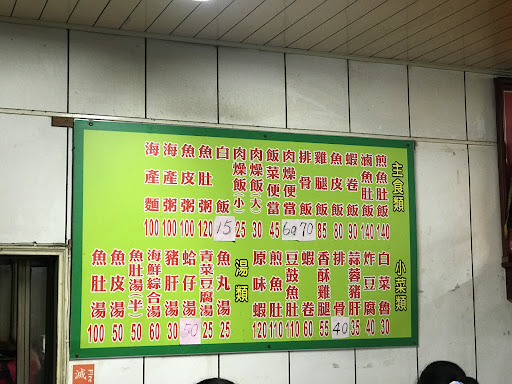 主食類
煎魚肚飯 140
滷魚肚飯 140
蝦卷飯 90
魚皮飯 80
雞腿飯 85
排骨飯 70
肉燥便當 60
飯菜便當 45
肉燥飯(大) 30
肉燥飯(小) 25
白飯 15
魚肚粥 120
魚皮粥 100
海產粥 100
海產麵 100
小菜類
白菜魯 30
炸豆腐 25
蒜蓉豬肝 35
排骨 40
香酥雞腿 55
蝦卷 60
豆鼓魚肚 110
煎魚肚 110
原味蝦 120
湯類
魚丸湯 25
青菜豆腐湯 25
蛤仔湯 50
豬肝湯 30
海鮮綜合湯 60
魚肚湯(半) 50
魚皮湯 50
魚肚湯 100